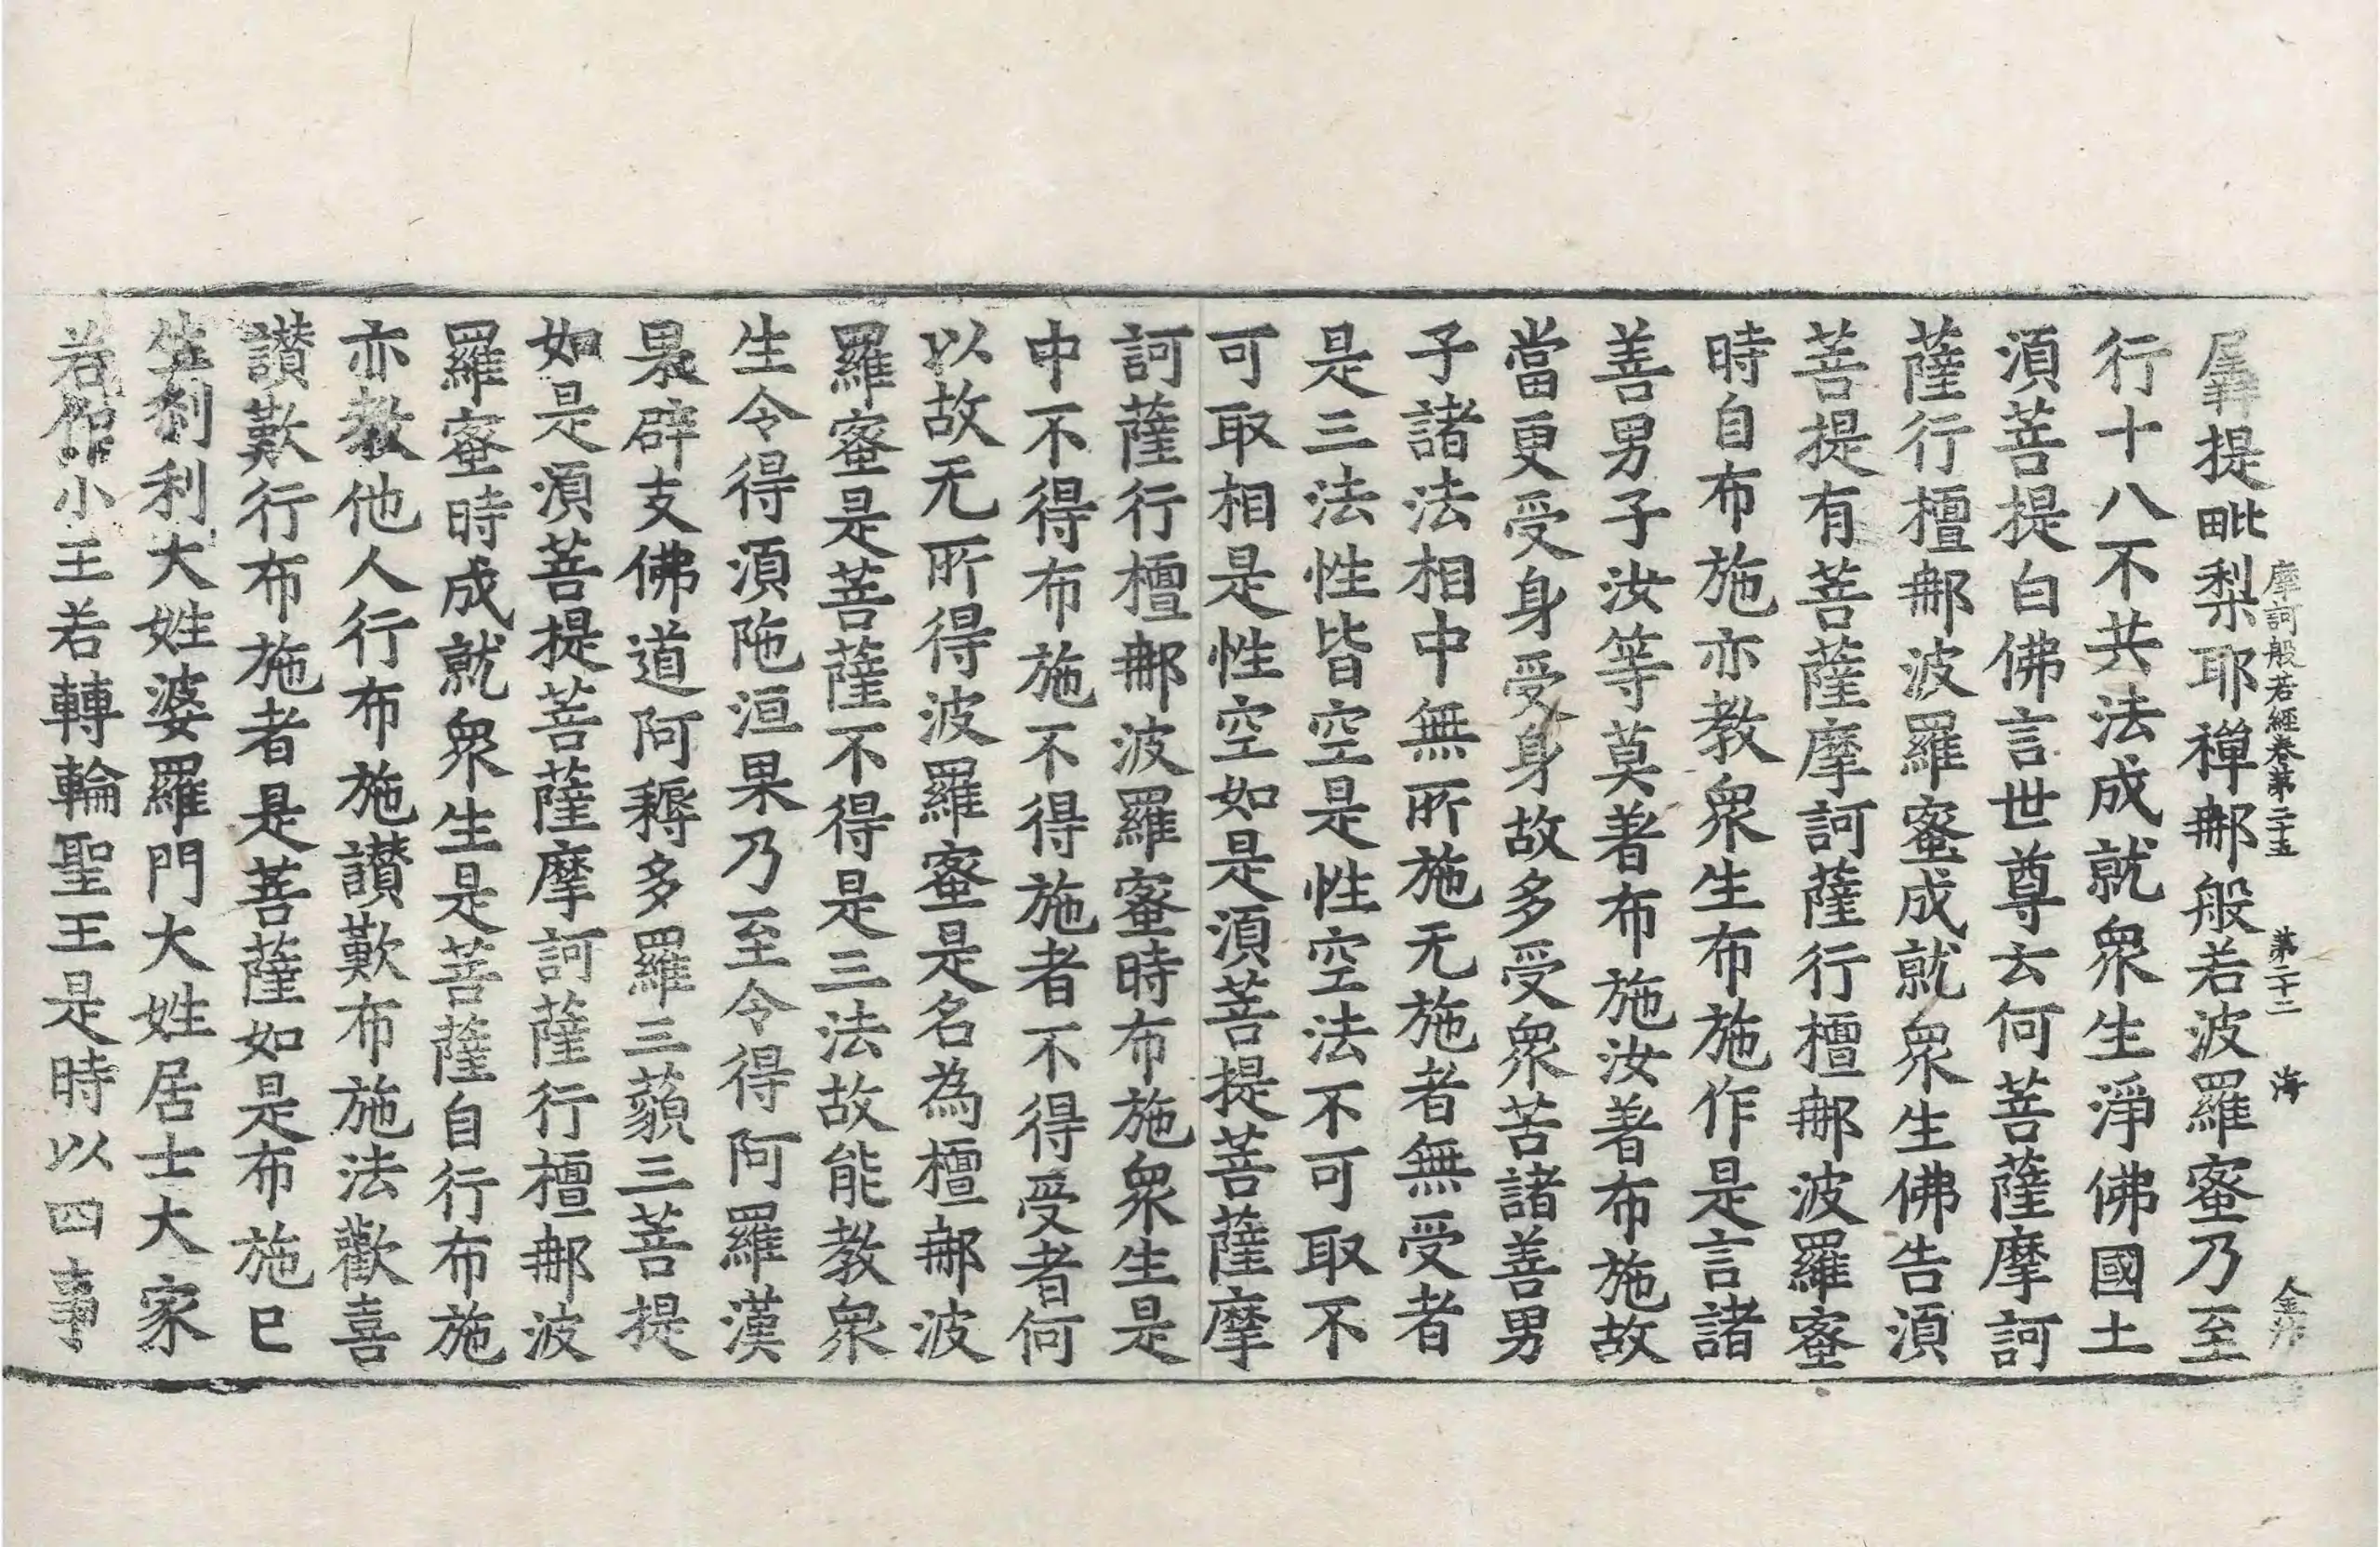 摩訶般若經卷第二十五 第二十二 海
羼提毗梨耶禪那般若波羅蜜乃至
行十八不共法成就衆生淨佛國土
須菩提白佛言世尊云何菩薩摩訶
薩行檀那波羅蜜成就衆生佛告須
菩提有菩薩摩訶薩行檀那波羅蜜
時自布施亦教衆生布施作是言諸
善男子汝等莫著布施汝著布施故
當更受身受身故多受衆苦諸善男
子諸法相中無所施无施者無受者
是三法性皆空是性空法不可取不
可取相是性空如是須菩提菩薩摩
訶薩行檀那波羅蜜時布施衆生是
中不得布施不得施者不得受者何
以故无所得波羅蜜是名為檀那波
羅蜜是菩薩不得是三法故能教衆
生令得須陁洹果乃至令得阿羅漢
果辟支佛道阿耨多羅三藐三菩提
如是須菩提菩薩摩訶薩行檀那波
羅蜜時成就衆生是菩薩自行布施
亦教他人行布施讃歎布施法歡喜
讃歎行布施者是菩薩如是布施已
生刹利大姓婆羅門大姓居士大家
若作小王若轉輪聖王是時以四事